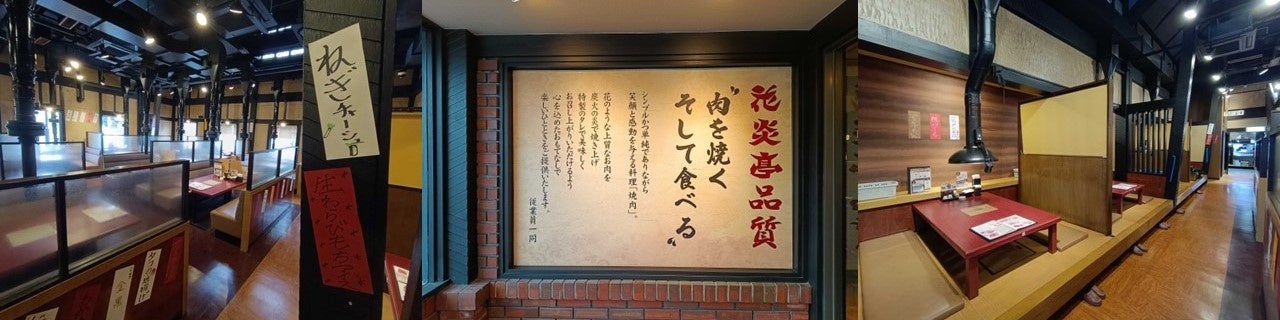 ねぎチャーシュー
生わらびもち
花炎亭品質
"肉を焼く
そして食べる"
シンプルかつ単純でありながら
笑顔と感動を与える料理「焼肉」。
花のような上質なお肉を
炭火の炎で焼き上げ
特製のタレで美味しく
お召し上がりいただけるよう
心を込めたおもてなしで
楽しいひとときをご提供いたします。
従業員一同